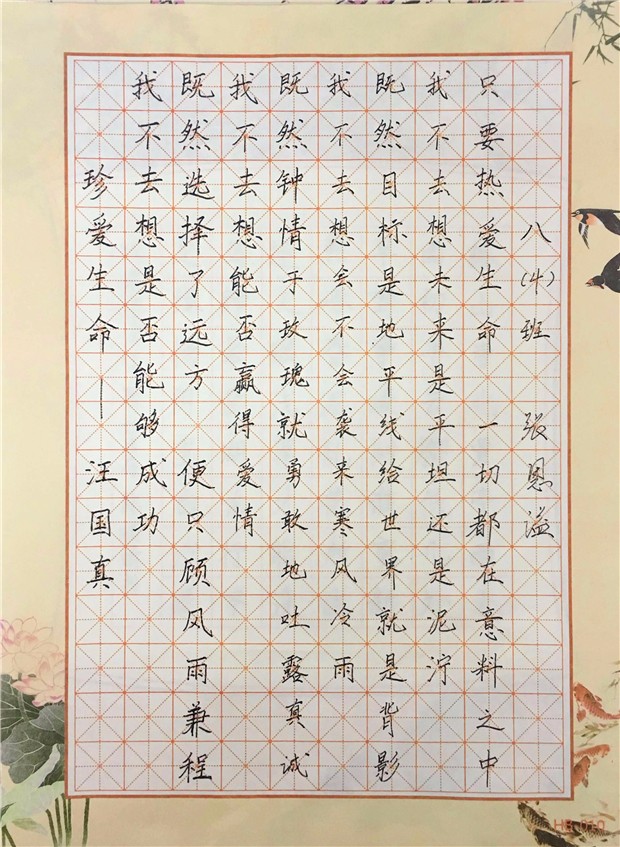 珍爱生命—汪国真
我不去想是否能够成功
既然选择了远方 便只顾风雨兼程
我不去想能否赢得爱情
既然钟情于玫瑰就勇敢地吐露真诚
我不去想会不会袭来寒风冷雨
既然目标是地平线给世界就是背影
我不去想未来是平坦还是泥泞
只要热爱生命 一切都在意料之中
八(4)班 张恩溢
HB-010